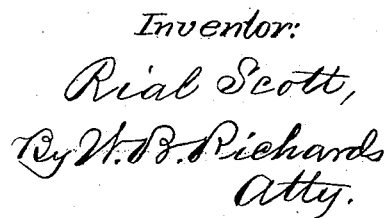 Inventor:
Rial Scott,
By W. B. Richards
Atty.